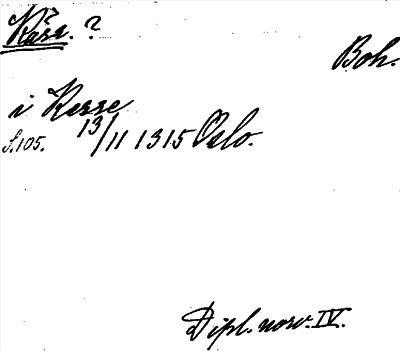 Kasa. ?
Boh.
i Kasse
S.105. 13/11 1315 Oslo.
Dipl. norv. IV.